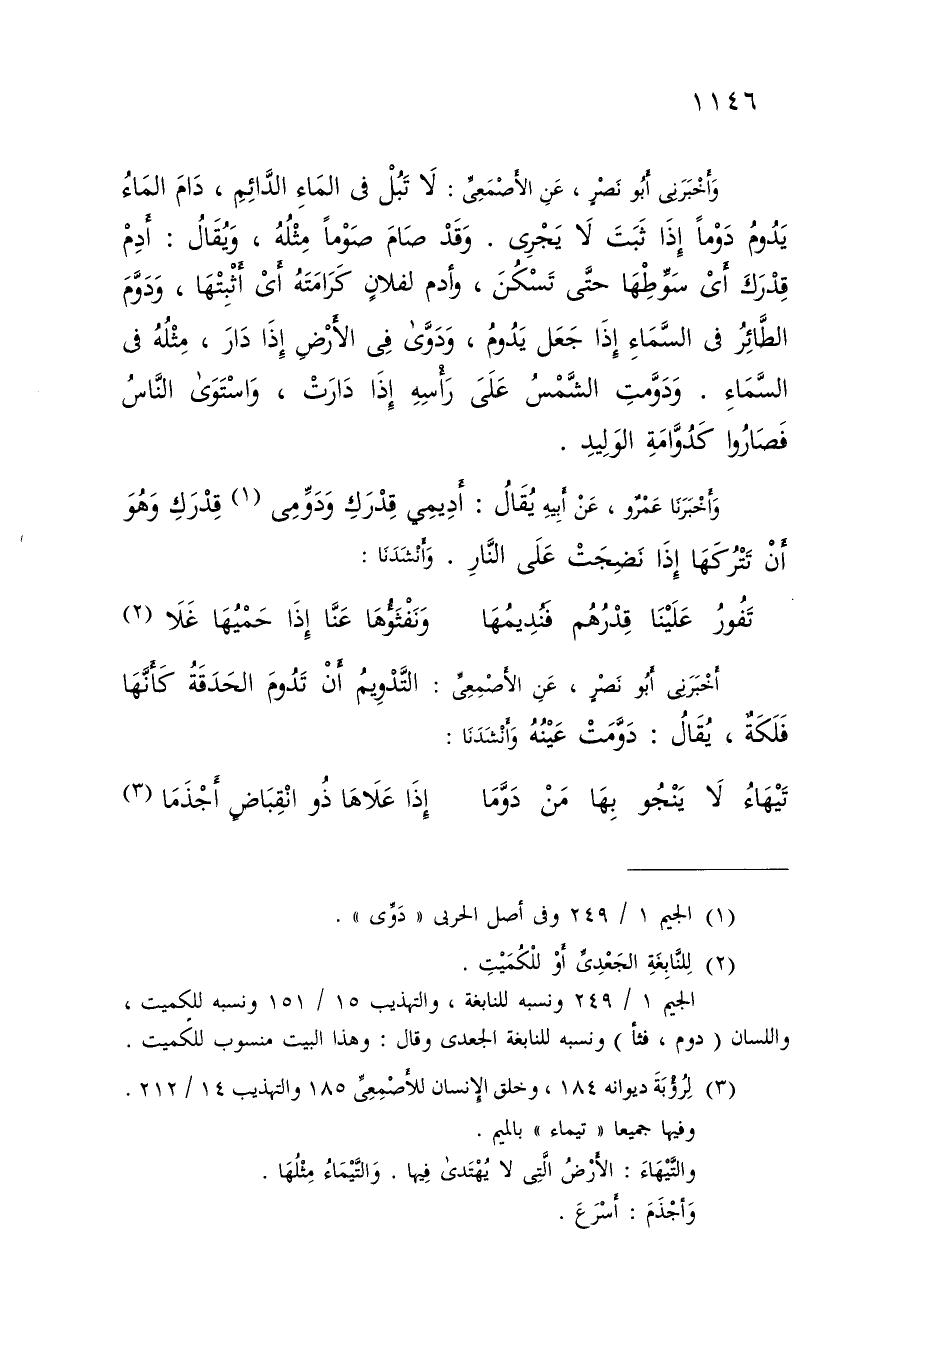 ١١٤٦
وَأَخْبَرَنِى أَبُو نَصْرٍ ، عَنِ الأَصْمَعِىِّ : لَا تَبُلْ فى المَاءِ الدَّائِمِ ، دَامَ المَاءُ
يَدُومُ دَوْماً إِذَا ثَبَتَ لَا يَجْرِى . وَقَدْ صَامَ صَوْماً مِثْلُهُ ، وَيُقَالُ : أَدِمْ
قِدْرَكَ أَىْ سَوِّطِهَا حتَّى تَسْكُنَ ، وأدم لفلانٍ كَرَامَتَهُ أَىْ أَثْبِتْهَا ، وَدَوَّمَ
الطَّائِرُ فى السَّمَاءِ إِذَا جَعَل يَدُومُ ، وَدَوَّىٰ فِى الأَرْضِ إِذَا دَارَ ، مِثْلُهُ فى
السَّمَاءِ . وَدَوَّمتِ الشَّمْسُ عَلَىَ رَأْسِهِ إِذَا دَارَتْ ، وَاسْتَوَىٰ النَّاسُ
فَصَارُوا كَدُوَّامَةِ الوَلِيدِ .
وَأَخْبَرَنَا عَمْرٌو ، عَنْ أَبِيهِ يُقَالُ : أَدِيمِي قِدْرَكِ وَدَوِّمِى (١) قِدْرَكِ وَهُوَ
أَنْ تَتْرُكَهَا إِذَا نَضِجَتْ عَلَى النَّارِ . وَأَنْشَدَنَا :
تَفُورُ عَلَيْنَا قِدْرُهُم فَنُدِيمُهَا وَنَفْثَؤُهَا عَنَّا إِذَا حَمْيُهَا غَلَا (٢)
أَخْبَرَنِى أَبُو نَصْرٍ ، عَنِ الأَصْمِعِىِّ : التَّدْوِيمُ أَنْ تَدُومَ الحَدَقَةُ كَأَنَّهَا
فَلَكَةٌ ، يُقَالُ : دَوَّمَتْ عَيْنُهُ وَأَنْشَدَنَا :
تَيْهَاءُ لَا يَنْجُو بِهَا مَنْ دَوَّمَا إِذَا عَلَاهَا ذُو انْقِبَاضٍ أَجْذَمَا (٣)
(١) الجيم ١ / ٢٤٩ وفى أصل الحربى « دَوِّى » .
(٢) لِلنَّابِغَةِ الجَعْدِىِّ أَوْ للْكُمَيْتِ .
الجيم ١ / ٢٤٩ ونسبه للنابغة ، والتهذيب ١٥ / ١٥١ ونسبه للكميت ،
واللسان ( دوم ، فثأ ) ونسبه للنابغة الجعدى وقال : وهذا البيت منسوب للكميت .
(٣) لِرُؤْبَةَ ديوانه ١٨٤ ، وخلق الإنسان للأَصْمِعِىِّ ١٨٥ والتهذيب ١٤ / ٢١٢ .
وفيها جميعا « تيماء » بالميم .
والتَّيْهَاءَ : الأَرْضُ الَّتِى لا يُهْتَدىٰ فِيها . وَالتَّيْمَاءُ مِثْلُهَا .
وَأجْذَمَ : أَسْرَعَ .